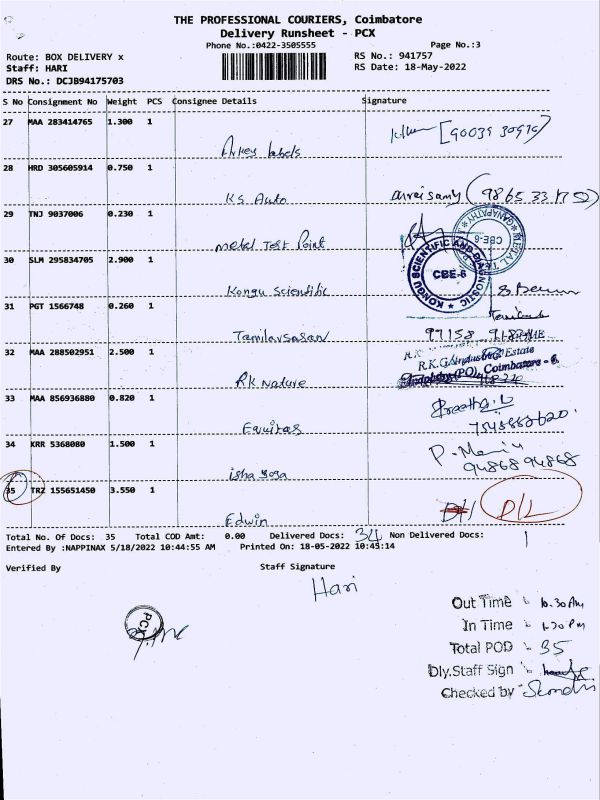 THE PROFESSIONAL COURIERS, Coimbatore
Delivery Runsheet - PCX
Phone No.:0422-3505555
Page No.:3
Route: BOX DELIVERY x
RS No.: 941757
Staff: HARI
RS Date: 18-May-2022
DRS No.: DCJB94175703
S No Consignment No Weight PCS Consignee Details Signature
27 MAA 283414765 1.300 1
labels
28 HRD 305605914 0.750 1
KS Auto
29 TNJ 9037006 0.230 1
metal Test Point
30 SLM 295834705 2.900 1
CBE-6
KONGU SCIENTIFIC AND DIAGNOSTIC
Kongu Scientific
31 PGT 1566748 0.260 1
97158
32 MAA 288502951 2.500 1
Estate
Coimbatore - 6
RK Nature
33 MAA 856936880 0.820 1
Equitas
34 KRR 5368080 1.500 1
94868 94868
isha yoga
35 TRZ 155651450 3.550 1
D/L D/L
Edwin
Total No. Of Docs: 35 Total COD Amt: 0.00 Delivered Docs: 34 Non Delivered Docs: 1
Entered By :NAPPINAX 5/18/2022 10:44:55 AM Printed On: 18-05-2022 10:45:14
Verified By Staff Signature
Hari
PCX
Out Time : 10.30 AM
In Time : 1.30 PM
Total POD : 35
Dly.Staff Sign :
Checked by